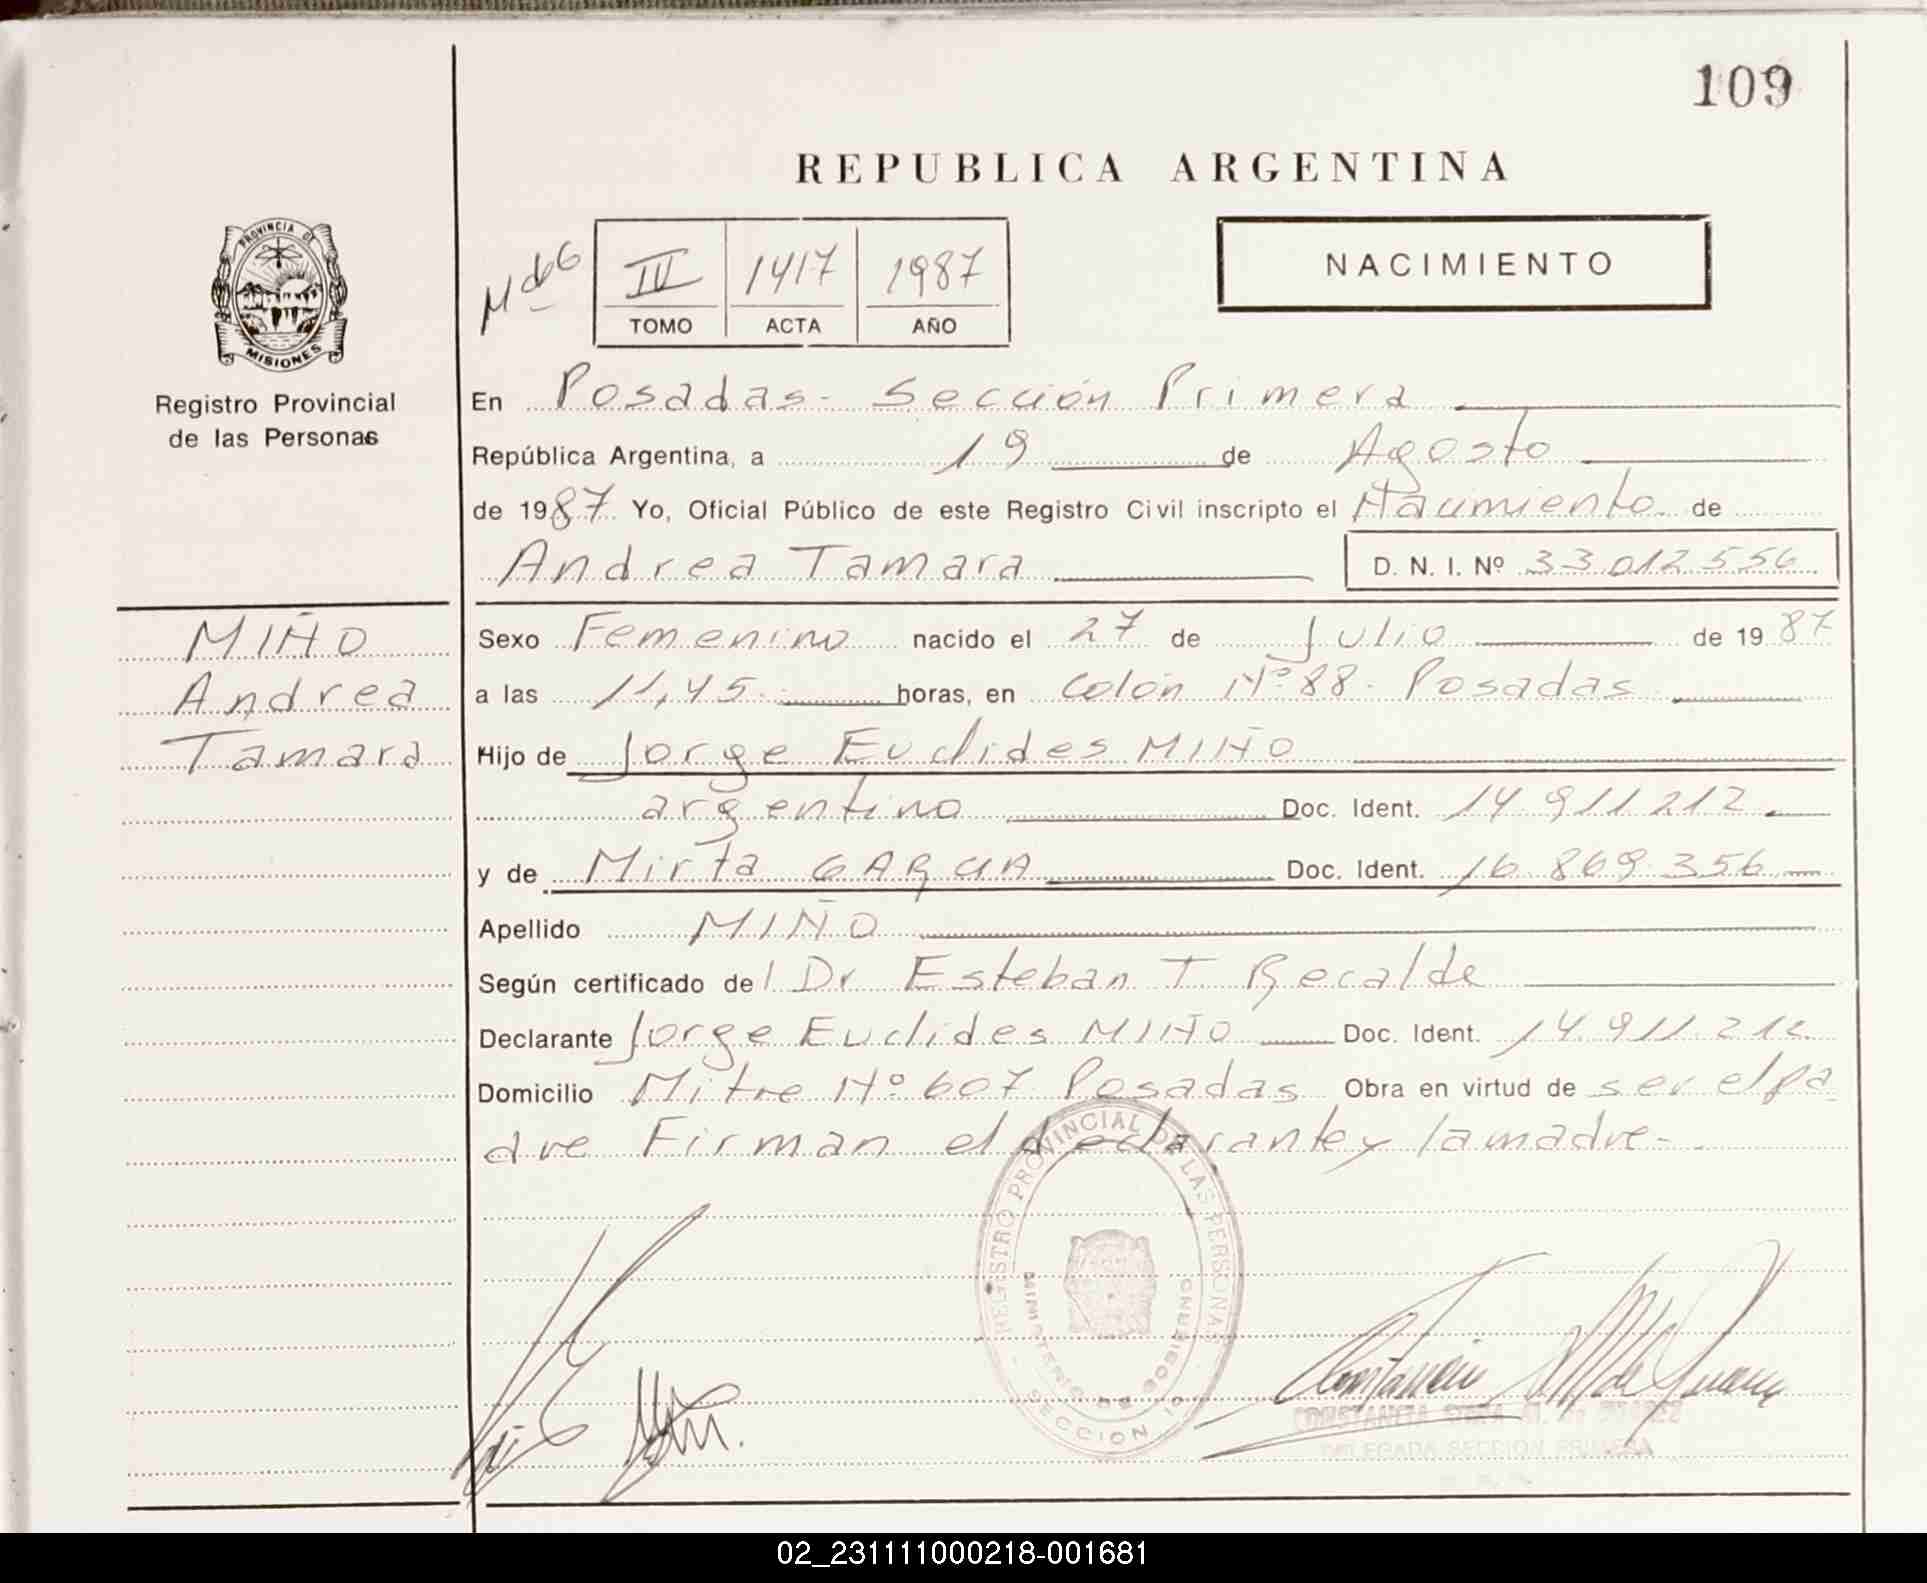 109
REPUBLICA ARGENTINA
PROVINCIA DE
MISIONES
Registro Provincial
de las Personas
IV 1417 1987
TOMO ACTA AÑO
NACIMIENTO
En Posadas - Sección Primera
República Argentina, a 19 de Agosto
de 1987 Yo, Oficial Público de este Registro Civil inscripto el Nacimiento de
Andrea Tamara D. N. I. Nº 33 012 556
MIÑO
Andrea
Tamara
Sexo Femenino nacido el 27 de Julio de 1987
a las 11,45 horas, en Colón Nº 88 - Posadas
Hijo de Jorge Euclides MIÑO
argentino Doc. Ident. 14 911 212
y de Mirta GARCIA Doc. Ident. 16 869 356
Apellido MIÑO
Según certificado del Dr Esteban T Recalde
Declarante Jorge Euclides MIÑO Doc. Ident. 14.911.212
Domicilio Mitre Nº 607 Posadas Obra en virtud de ser el pa
dre Firman el declarante y la madre -
REGISTRO PROVINCIAL DE LAS PERSONAS
MINISTERIO DE GOBIERNO
SECCION 1ª
DELEGADA SECCION PRIMERA
02_231111000218-001681